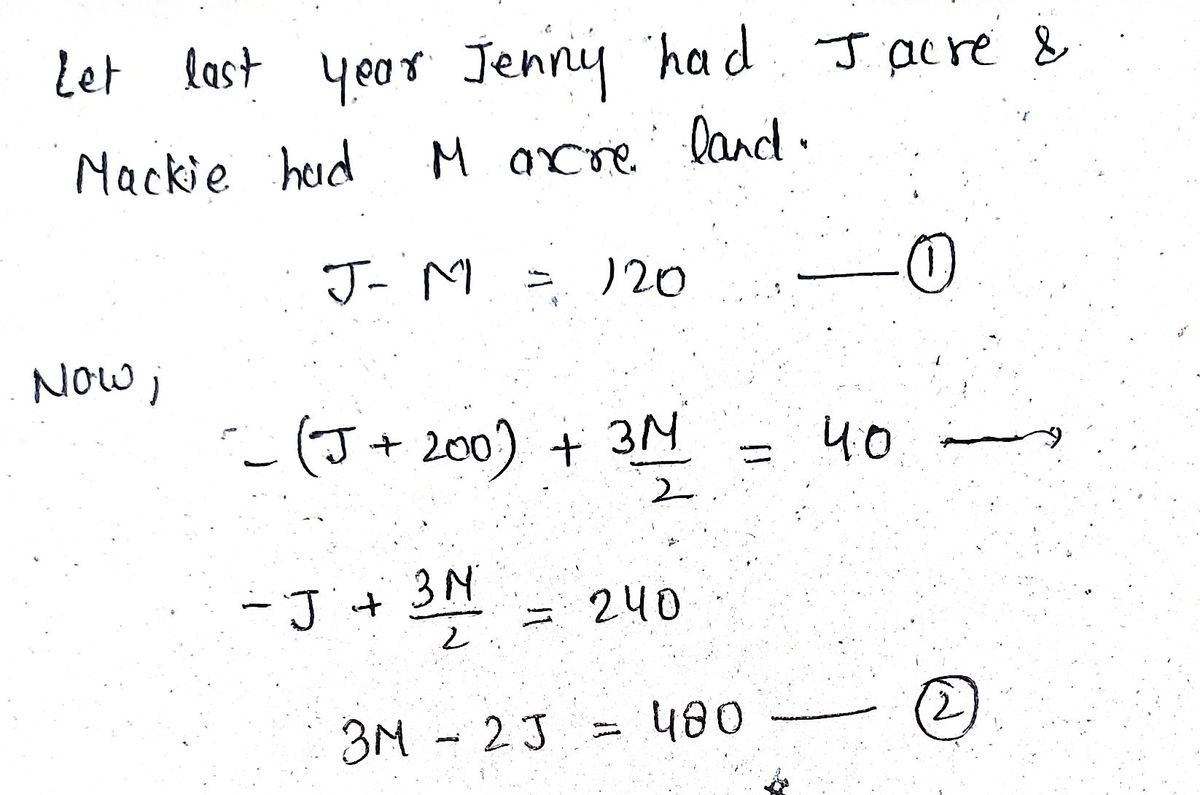 Let last year Jenny had J acre &
Mackie had M acre land.
J - M = 120 — ①
Now,
- (J + 200) + 3M/2 = 40 →
- J + 3M/2 = 240
3M - 2J = 480 — ②